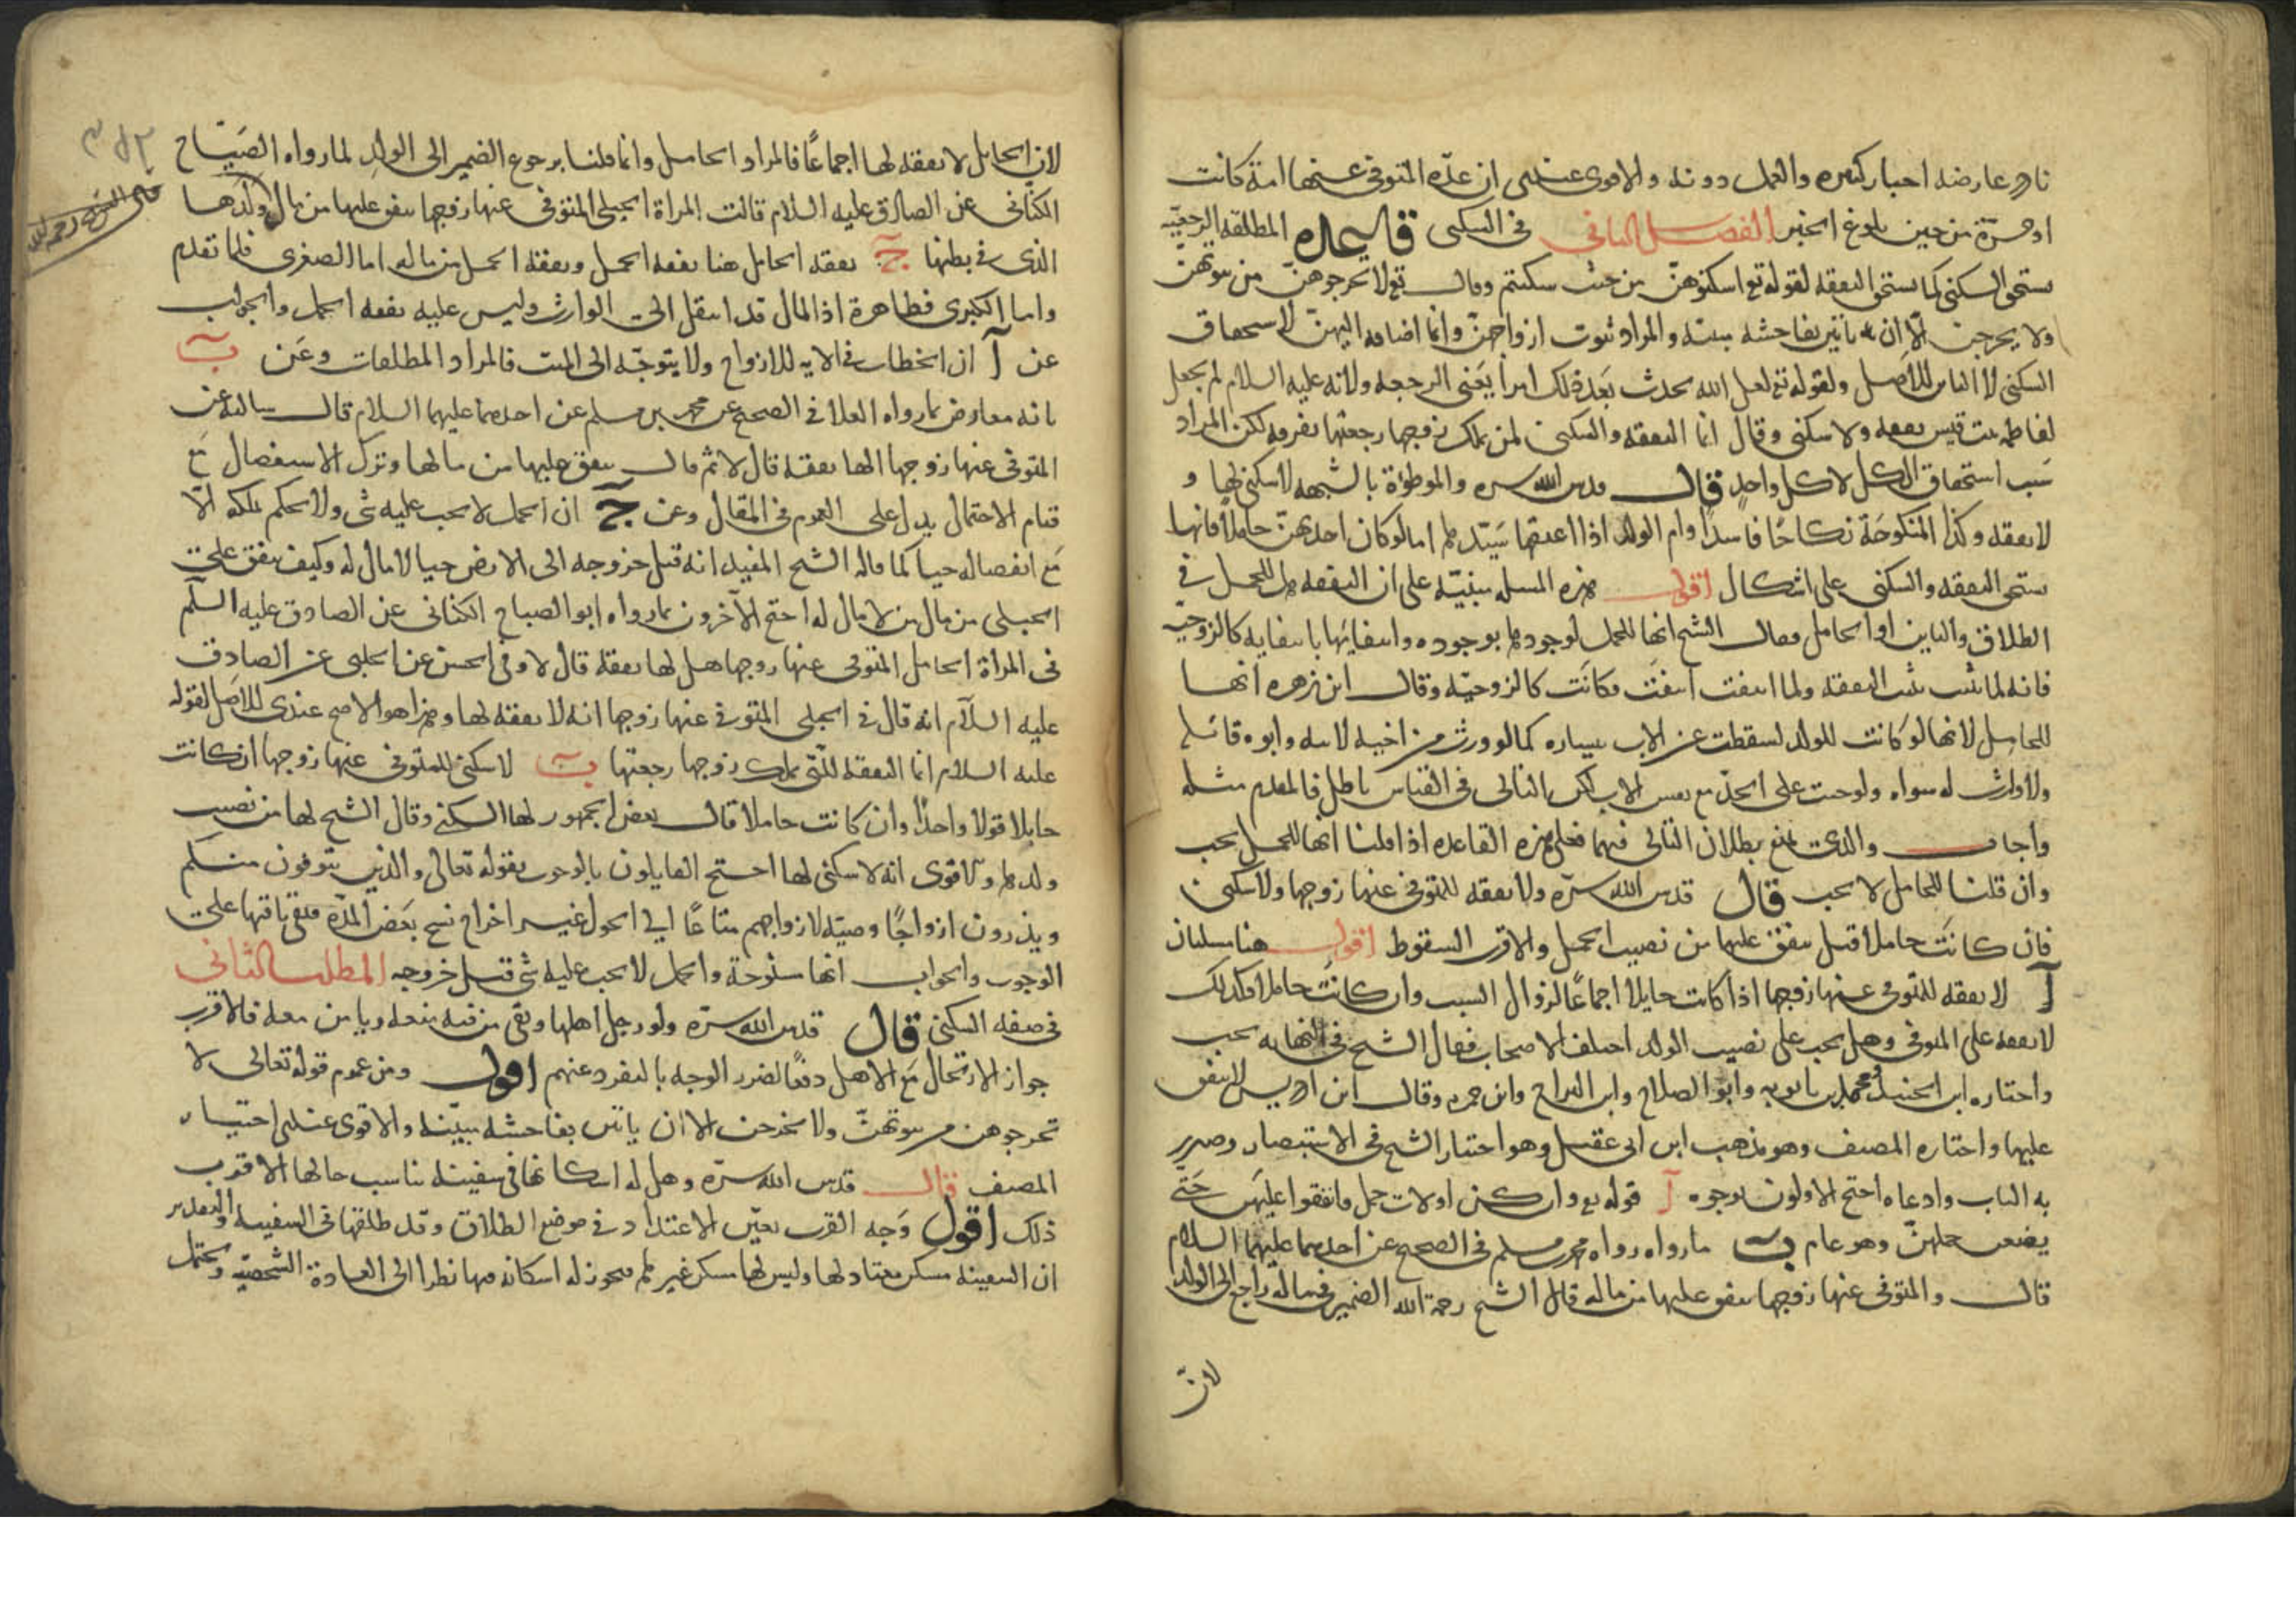 نادر عارضه اخبار كثيرة والعمل دونه والاقوى عندى ان عدة المتوفى عنها امة كانت
او حرّة من حين بلوغ الخبر الفصل الثانى فى السكنى قاعدة المطلقة الرجعيّة
تستحق السكنى كما تستحق النفقه لقوله تع اسكنوهنّ من حيث سكنتم وقال تع لا تخرجوهنّ من بيوتهنّ
ولا يخرجن الّا ان ياتين بفاحشه مبينه والمراد بيوت ازواجهنّ وانما اضافه اليهنّ لاستحقاق
السكنى لا الناس للاصل ولقوله تع لعل الله يحدث بعد ذلك امرا يعنى الرجعه ولانه عليه السلام لم يجعل
لفاطمه بنت قيس نفقه ولا سكنى وقال انما النفقه والسكنى لمن يملك زوجها رجعتها لكن المراد
سبب استحقاق الكل لا كل واحد قال قدس الله سره والموطؤة بالشبهه لا سكنى لها و
لا نفقه وكذا المنكوحَة نكاحًا فاسدا وام الولد اذا اعتقها سيّدها اما لو كان احديهنّ حاملًا فانها
تستحق النفقه والسكنى على اشكال اقول هذه المسله مبنيّه على ان النفقه هل للحمل فى
الطلاق والباين او الحامل فقال الشيخ انها للحمل لوجودها بوجوده وانتفائها بانتفايه كالزوجيّه
فانه لما ثبت ثبت النفقه ولما انتفت انتفت فكانت كالزوجيّه وقال ابن زهره انها
للحامل لانها لو كانت للولد لسقطت عن الاب بيساره كما لو ورث من اخيه لابيه وابوه قائلها
ولا وارث له سواه ولوجبت على الجدّ مع الاب لكن التالى فى القياس باطل فالمقدم مثله
واجاب والدى بمنع بطلان التالى فيهما فعلى هذه القاعده اذا قلنا انها للحمل يجب
وان قلنا للحامل لا يجب قال قدس الله سرّه ولا نفقه للمتوفى عنها زوجها ولا سكنى
فان كانت حاملا قيل ينفق عليها من نصيب الحمل والاقرب السقوط اقول هنا مسلتان
آ لا نفقه للمتوفى عنها زوجها اذا كانت حايلا اجماعًا لزوال السبب وان كانت حاملا فكذلك
لا نفقه على المتوفى وهل يجب على نصيب الولد اختلف الاصحاب فقال الشيخ فى النهايه يجب
واختاره ابن الجنيد ومحمد بن بابويه وابو الصلاح وابن البراج وابن حمزه وقال ابن ادريس لا ينفق
عليها واختاره المصنف وهو مذهب ابن ابى عقيل وهو اختيار الشيخ فى الاستبصار وصرر
به الباب وادعاه احتج الاولون بوجوه آ قوله تع وان كن اولات حمل فانفقوا عليهن حتى
يضعن حملهنّ وهو عام ب ما رواه رواه محمد بن مسلم فى الصحيح عن احدهما عليهما السلام
قال والمتوفى عنها زوجها ينفق عليها من ماله قال الشيخ رحمة الله الضمير فى ماله راجع الى الولد
لان
لان الحايل لا نفقه لها اجماعًا فالمراد الحامل وانما قلنا برجوع الضمير الى الولد لما رواه الصّبّاح
الكنانى عن الصادق عليه السلام قالت المراة الحبلى المتوفى عنها زوجها ينفق عليها من مال ولدها
الذى فى بطنها ج نفقه الحامل هنا نفقه الحمل ونفقه الحمل من ماله اما الصغرى فلما تقدم
واما الكبرى فظاهرة اذ المال قد انتقل الى الوارث وليس عليه نفقه الحمل والجواب
عن آ ان الخطاب فى الايه للازواج ولا يتوجّه الى الميت فالمراد المطلقات وعن ب
بانه معارض بما رواه العلا فى الصحيح عن محمد بن مسلم عن احدهما عليهما السلام قال سالته عن
المتوفى عنها زوجها الها نفقه قال لا ثم قال ينفق عليها من مالها وترك الاستفصال مع
قيام الاحتمال يدل على العموم فى المقال وعن ج ان الحمل لا يجب عليه شى ولا يحكم بملكه الّا
مع انفصاله حيا كما قاله الشيخ المفيد انه قبل خروجه الى الارض حيا لا مال له وكيف ينفق على
الحبلى من مال من لا مال له احتج الآخرون بما رواه ابو الصباح الكنانى عن الصادق عليه السلم
فى المراة الحامل المتوفى عنها زوجها هل لها نفقه قال لا وفى الحسن عن الحلبى عن الصادق
عليه السلام انه قال فى الحبلى المتوفى عنها زوجها انه لا نفقه لها وهذا هو الاصح عندى للاصل لقوله
عليه السلام انما النفقه للتى يملك زوجها رجعتها ب لا سكنى للمتوفى عنها زوجها ان كانت
حايلا قولا واحدًا وان كانت حاملا قال بعض الجمهور لها السكنى وقال الشيخ لها من نصيب
ولدها والاقوى انه لا سكنى لها احتج القايلون بالوجوب بقوله تعالى والذين يتوفون منكم
ويذرون ازواجًا وصيّه لازواجهم متاعًا الى الحول غير اخراج نسخ بعض المدّه فبقى باقيها على
الوجوب والجواب انها منسوخة والحمل لا يجب عليه شى قبل خروجه المطلب الثانى
فى صفه السكنى قال قدس الله سرّه ولو رحل اهلها وبقى من فيه منعه ويا من معه فالاقرب
جواز الارتحال مع الاهل دفعًا لضرر الوجه بالتفرد عنهم اقول ومن عموم قوله تعالى لا
تخرجوهن من بيوتهنّ ولا يخرجن الا ان ياتين بفاحشه مبيّنه والاقوى عندى اختيار
المصنف قال قدس الله سرّه وهل له اسكانها فى سفينه تناسب حالها الاقرب
ذلك اقول وجه القرب تعيّن الاعتداد فى موضع الطلاق وقد طلقها فى السفينه والتقدير
ان السفينه مسكن معتاد لها وليس لها مسكن غيرها فيجوز له اسكانه فيها نظرا الى العادة الشخصيّه ويحتمل